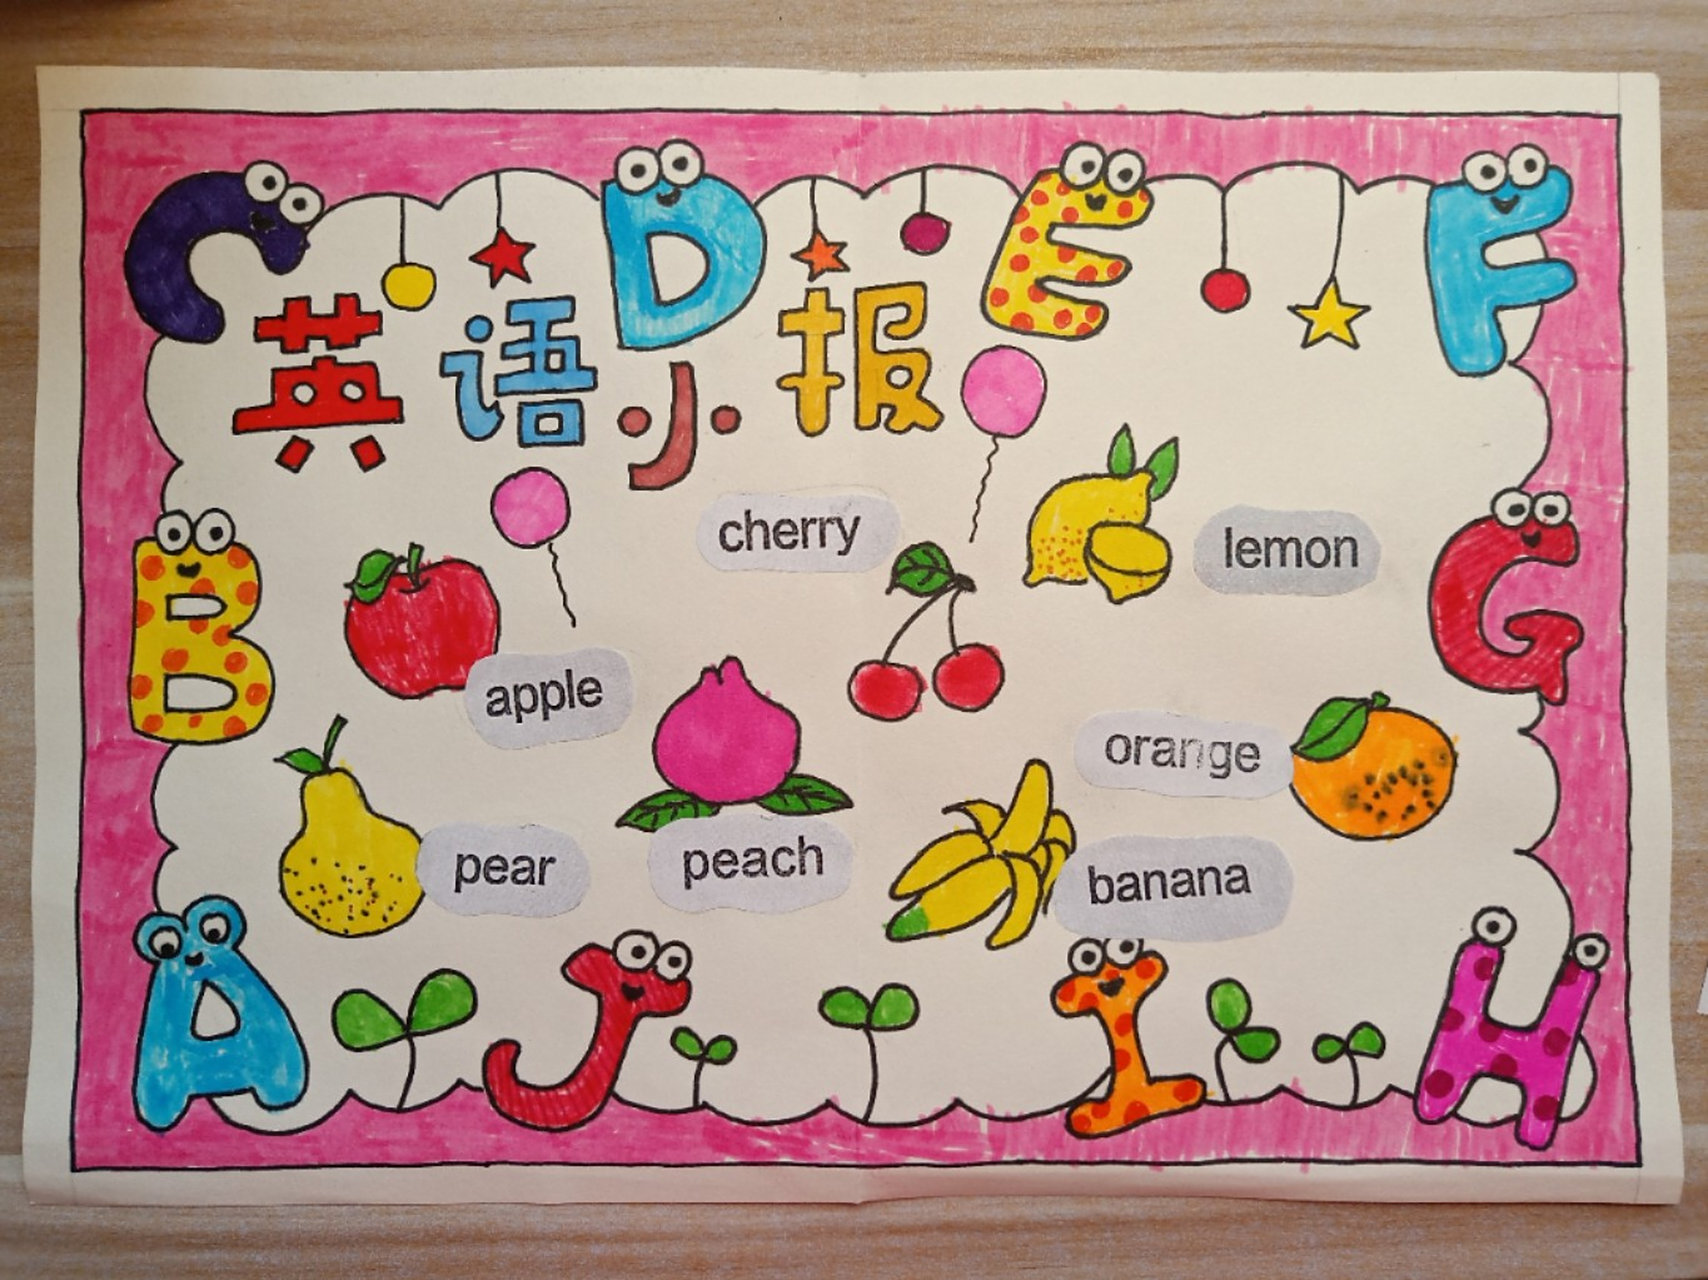 C
D
E
F
英语小报
cherry
lemon
B
G
apple
orange
pear
peach
banana
A
J
I
H